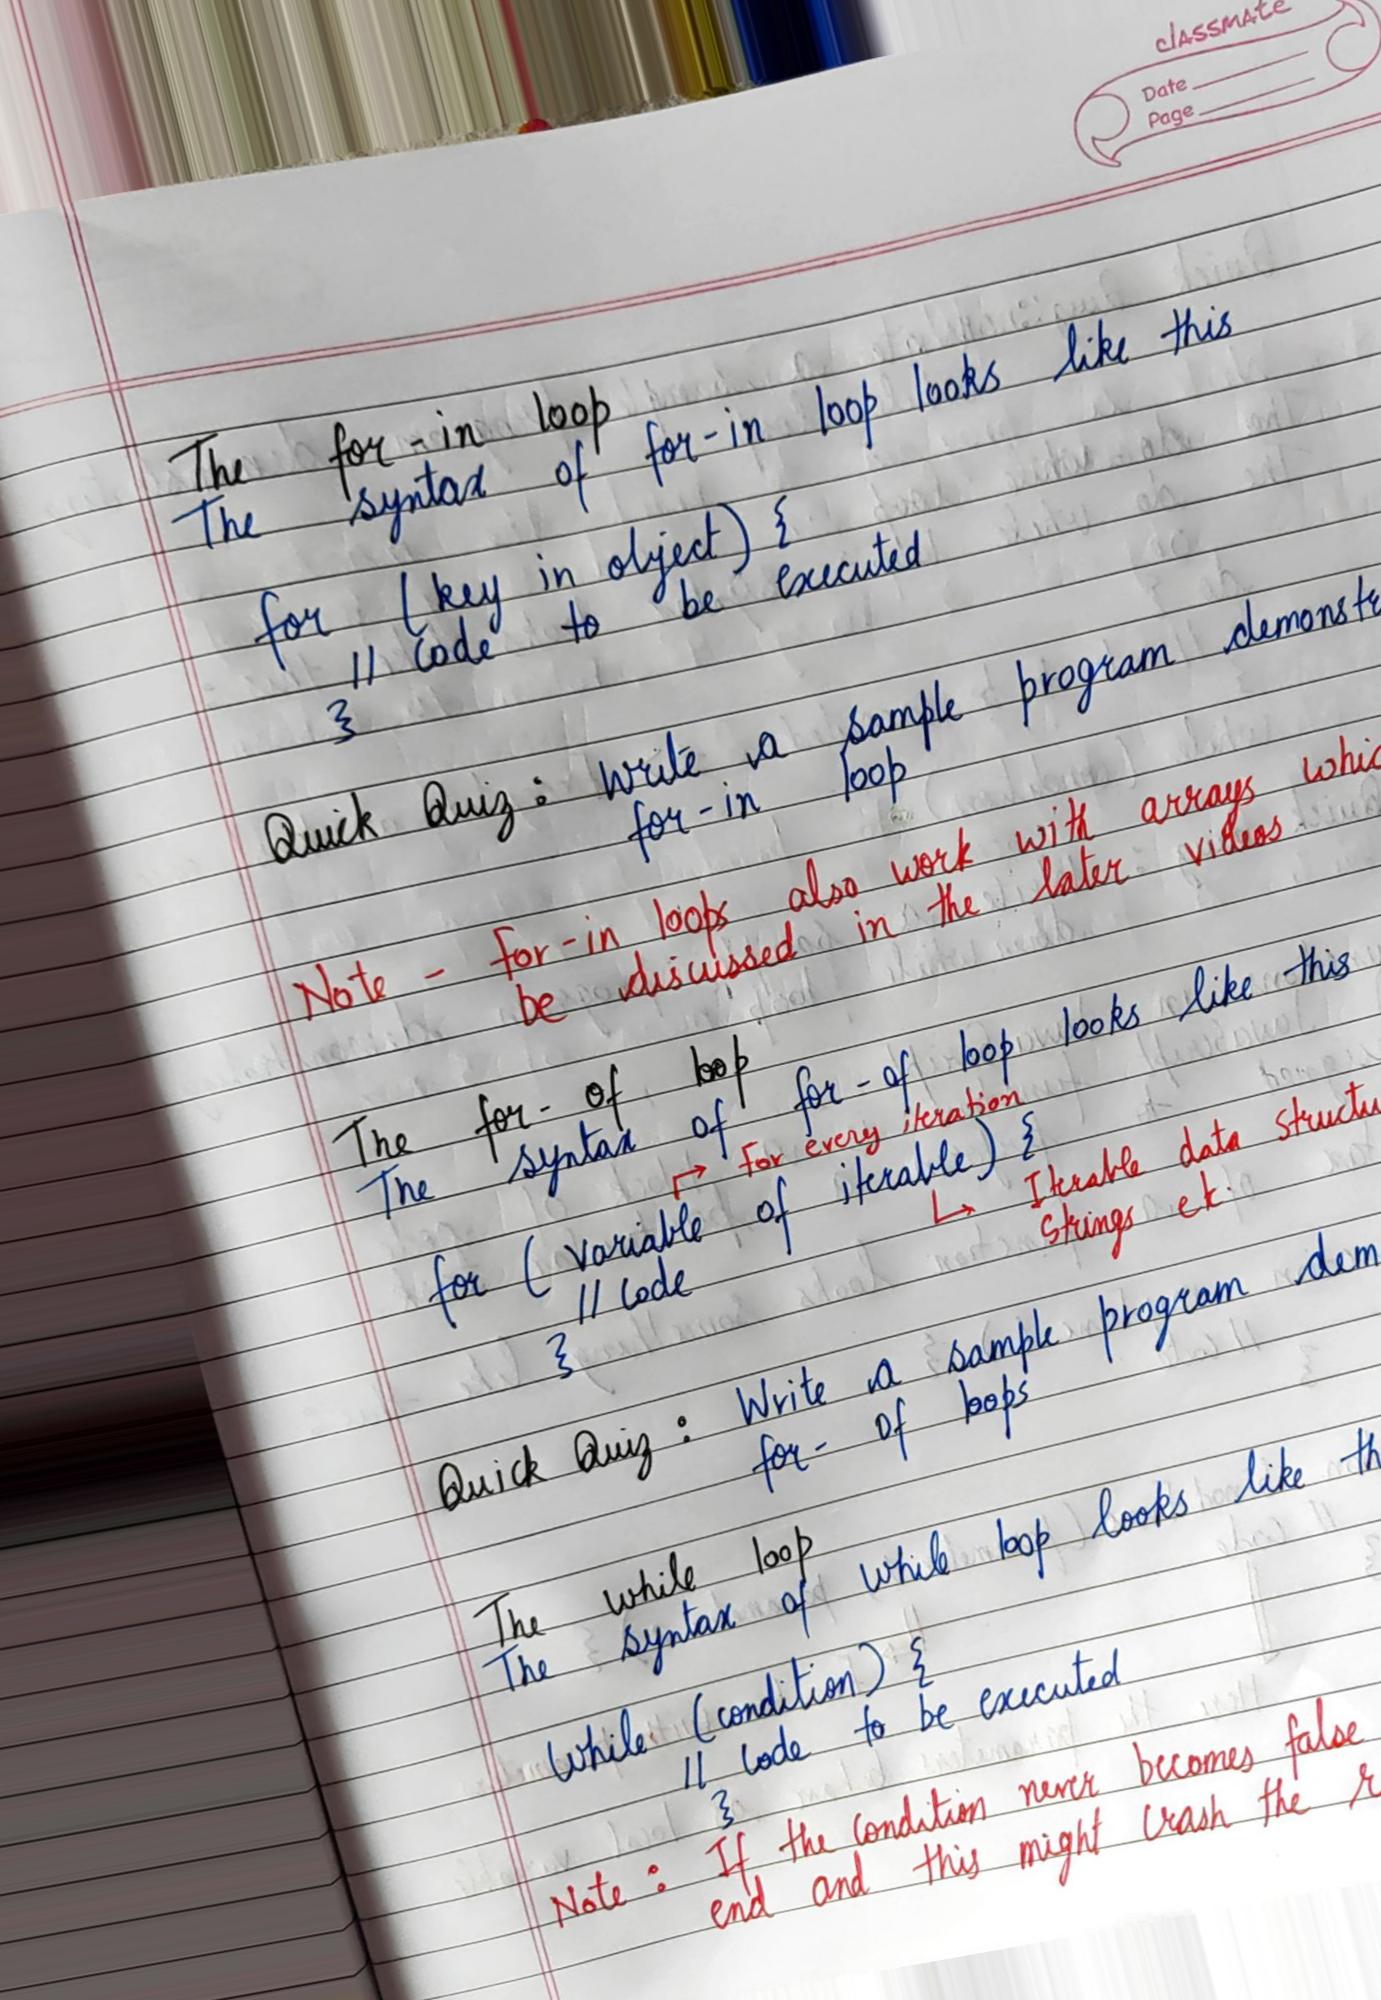 classmate
Date
Page
The for-in loop
The syntax of for-in loop looks like this
for (key in object) {
// Code to be executed
}
Quick Quiz: Write a sample program demonstr
for-in loop
Note - for-in loops also work with arrays whic
be discussed in the later videos
The for-of loop
The syntax of for-of loop looks like this
For every iteration
for (variable of iterable) {
Iterable data structu
// Code
Strings etc.
}
Quick Quiz: Write a sample program dem
for-of loops
The while loop
The syntax of while loop looks like th
While (condition) {
// Code to be executed
}
Note: If the condition never becomes false
end and this might crash the r